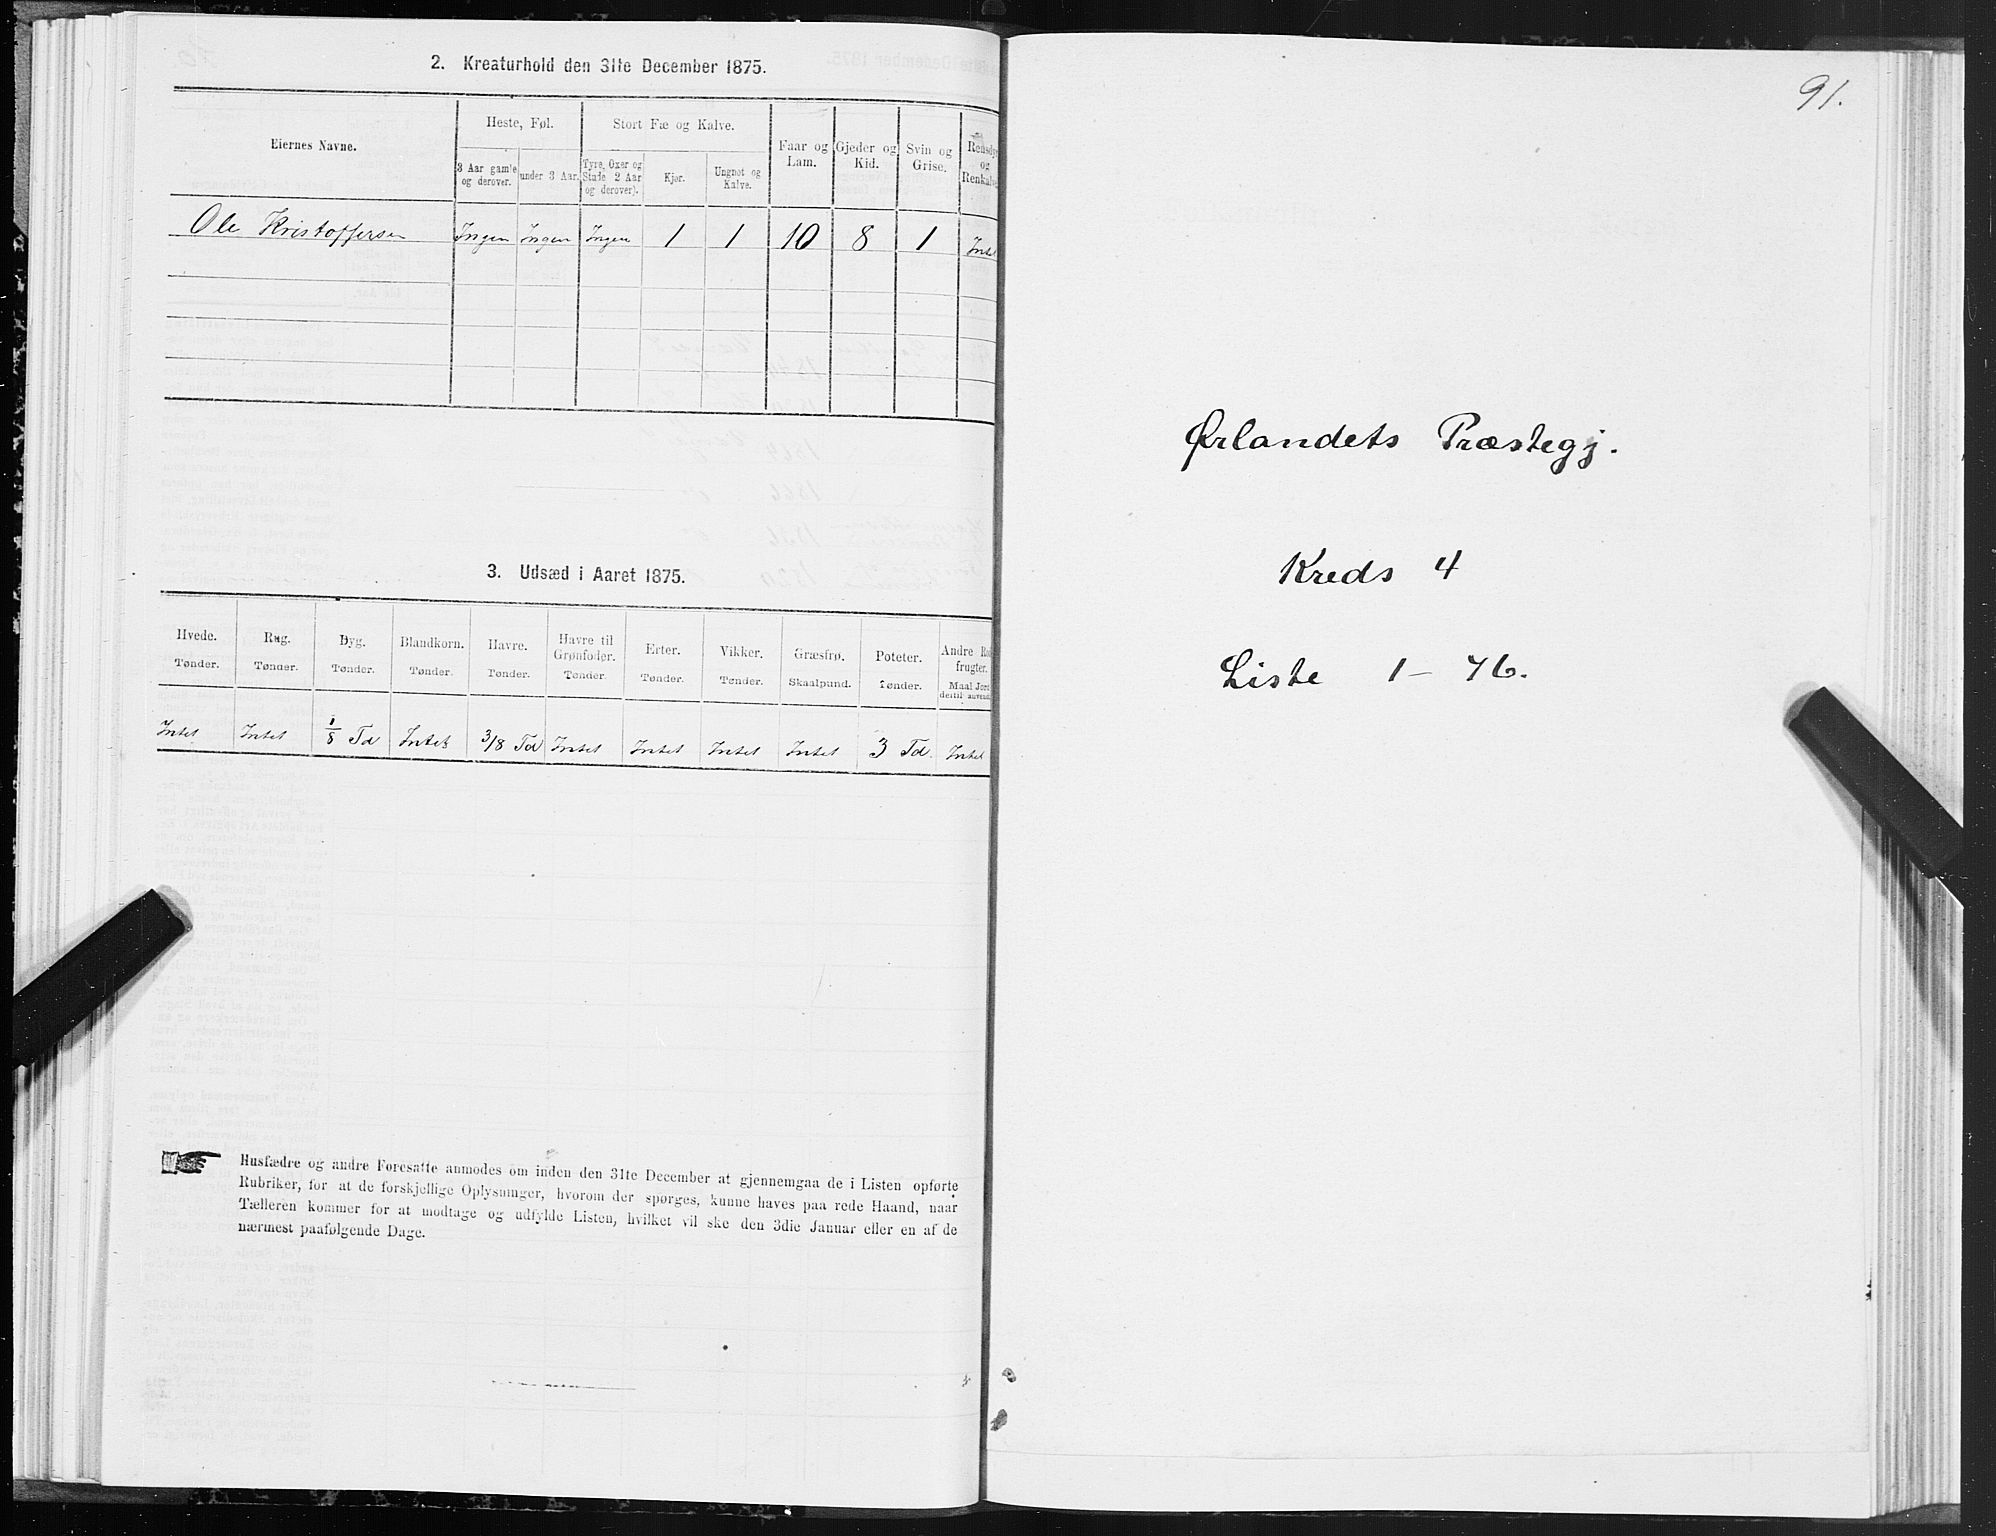 2. Kreaturhold den 31te December 1875.
Eiernes Navne.
Heste, Føl.
Stort Fæ og Kalve.
3 Aar gamle og derover.
under 3 Aar.
Tyre, Oxer og Stude 2 Aar og derover).
Kjør.
Ungnøt og Kalve.
Faar og Lam.
Gjeder og Kid.
Svin og Grise.
Rensdyr og Renkalve
Ole Kristoffersen Ingen Ingen Ingen 1 1 10 8 1 Intet
3. Udsæd i Aaret 1875.
Hvede. Rug. Byg. Blandkorn. Havre. Havre til Grønfoder. Erter. Vikker. Græsfrø. Poteter. Andre Rodfrugter.
Tønder. Tønder. Tønder. Tønder. Tønder. Tønder. Tønder. Tønder. Skaalpund. Tønder. Maal Jord dertil anvendt
Intet Intet 1/8 Td Intet 3/8 Td Intet Intet Intet Intet 3 Td. Intet
Husfædre og andre Foresatte anmodes om inden den 31te December at gjennemgaa de i Listen opførte
Rubriker, for at de forskjellige Oplysninger, hvorom der spørges, kunne haves paa rede Haand, naar
Tælleren kommer for at modtage og udfylde Listen, hvilket vil ske den 3die Januar eller en af de
nærmest paafølgende Dage.
91.
Ørlandets Præstegj.
Kreds 4
Liste 1 – 76.